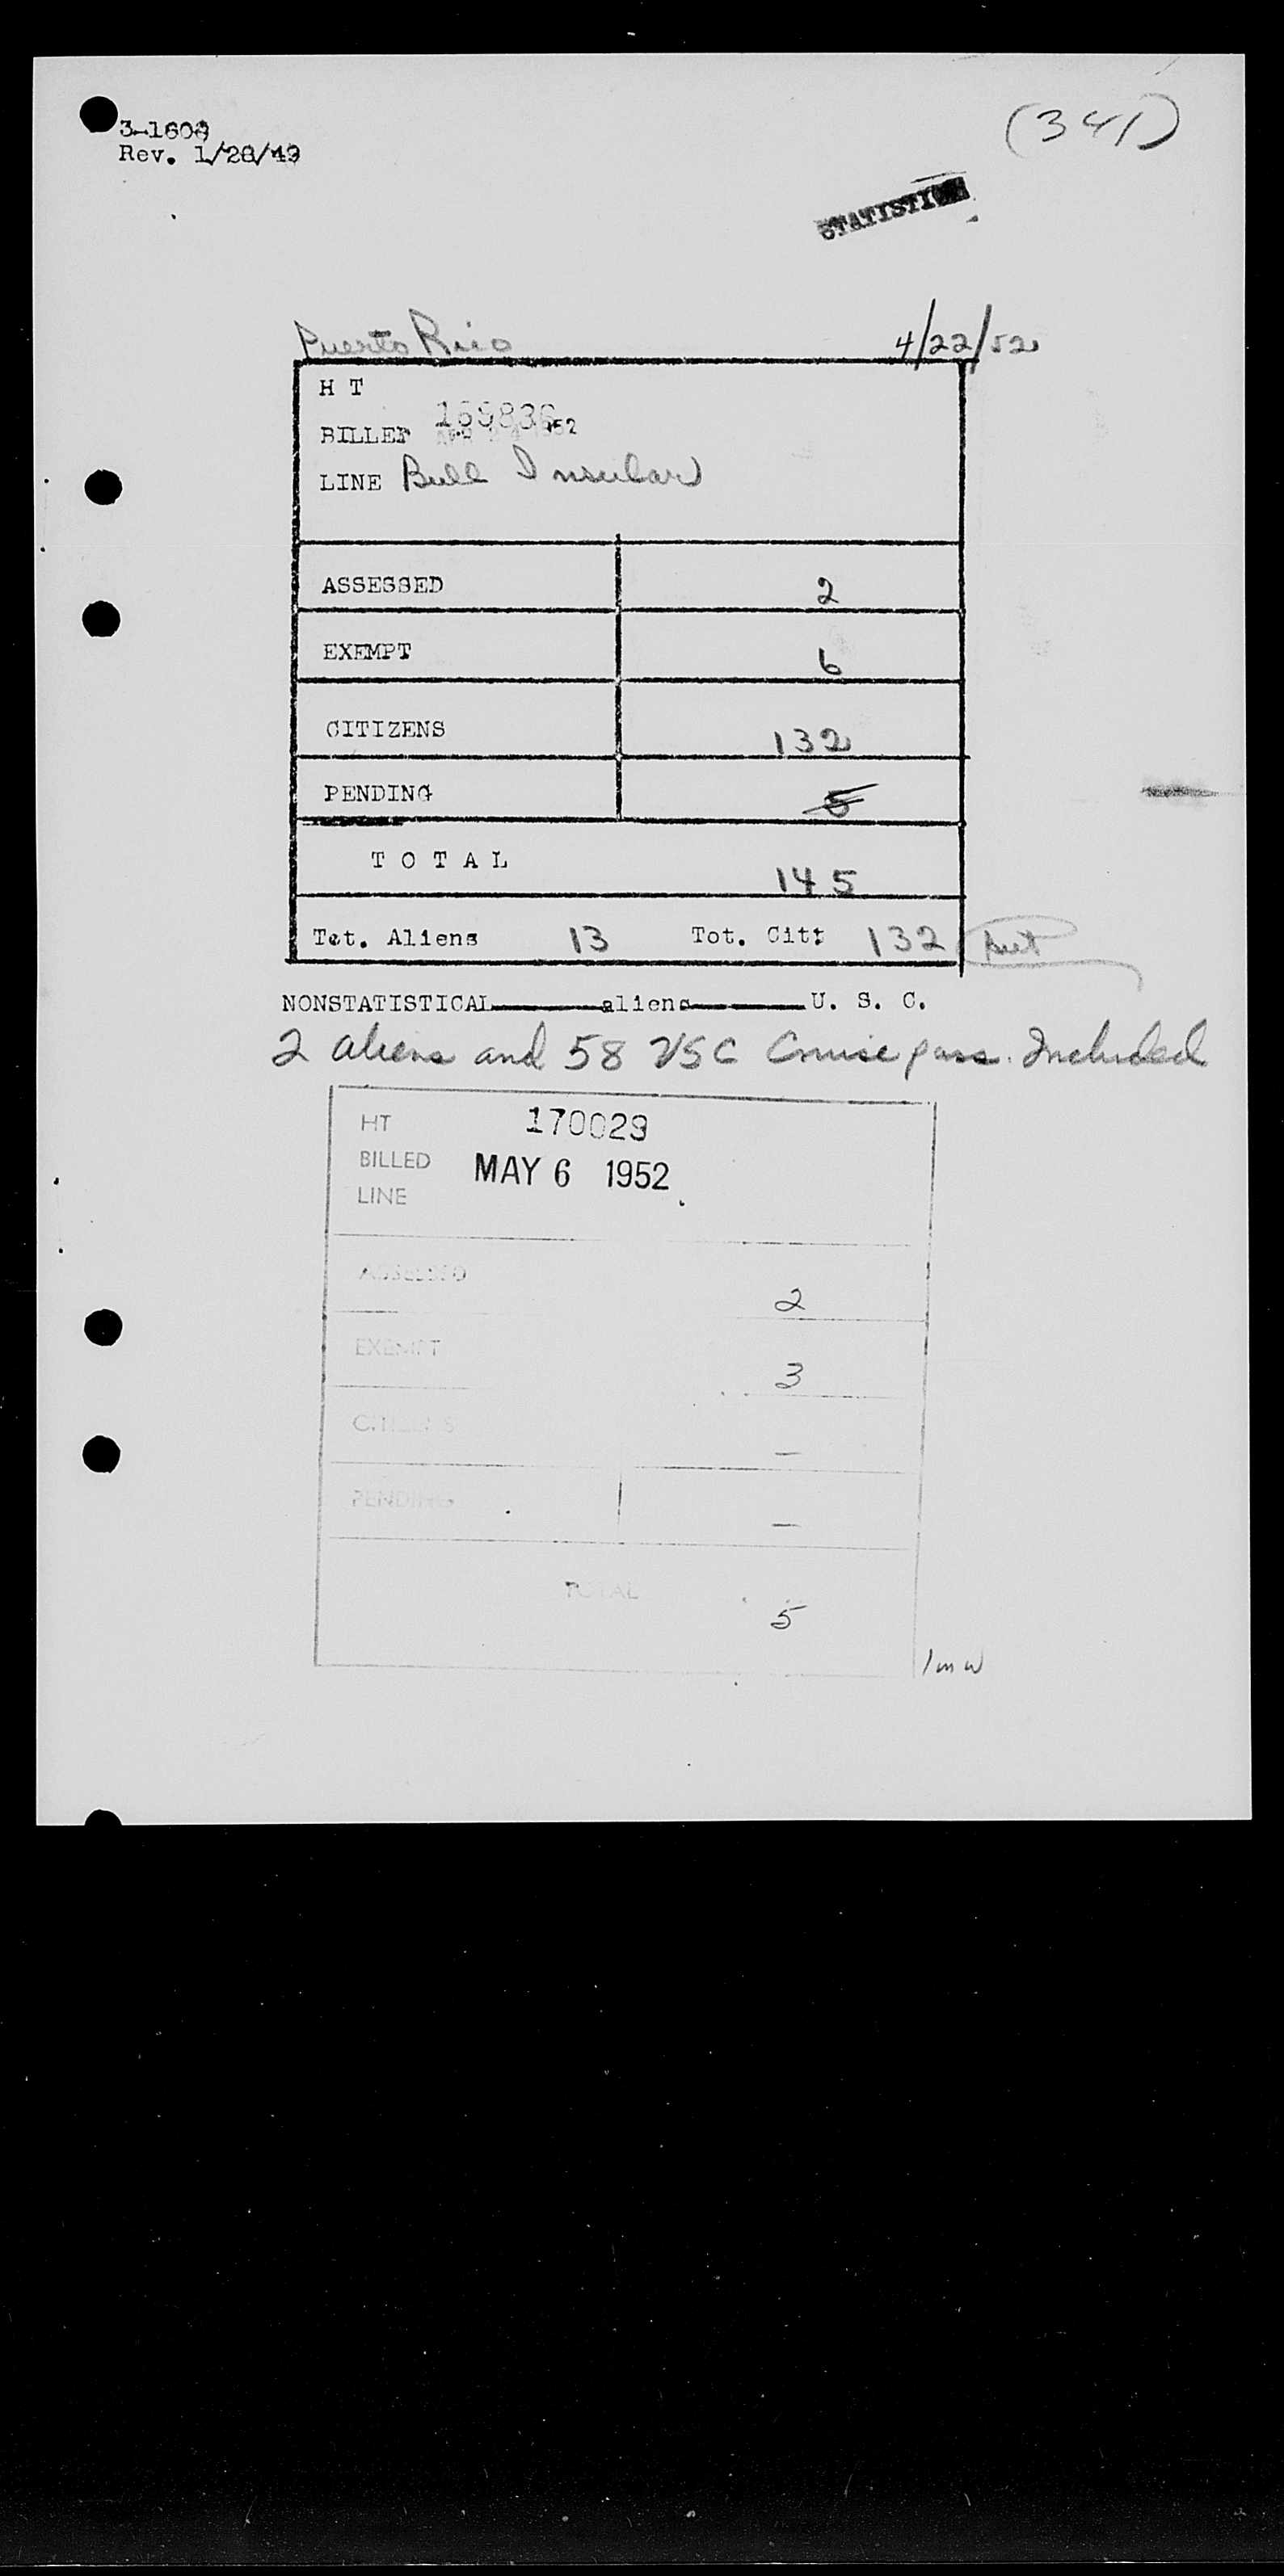 (341)
3-1608
Rev. 1/28/49
Puerto Rico 4/22/52
H T 169836
BILLED 1952
LINE Bull Insular
ASSESSED 2
EXEMPT 6
CITIZENS 132
PENDING 5
T O T A L 145
Tot. Aliens 13 Tot. Cit: 132
NONSTATISTICAL aliens U. S. C.
2 aliens and 58 USC Cruise pass. Included
HT 170029
BILLED MAY 6 1952
LINE
ASSESSED 2
EXEMPT 3
CITIZENS —
PENDING —
TOTAL 5
lmw